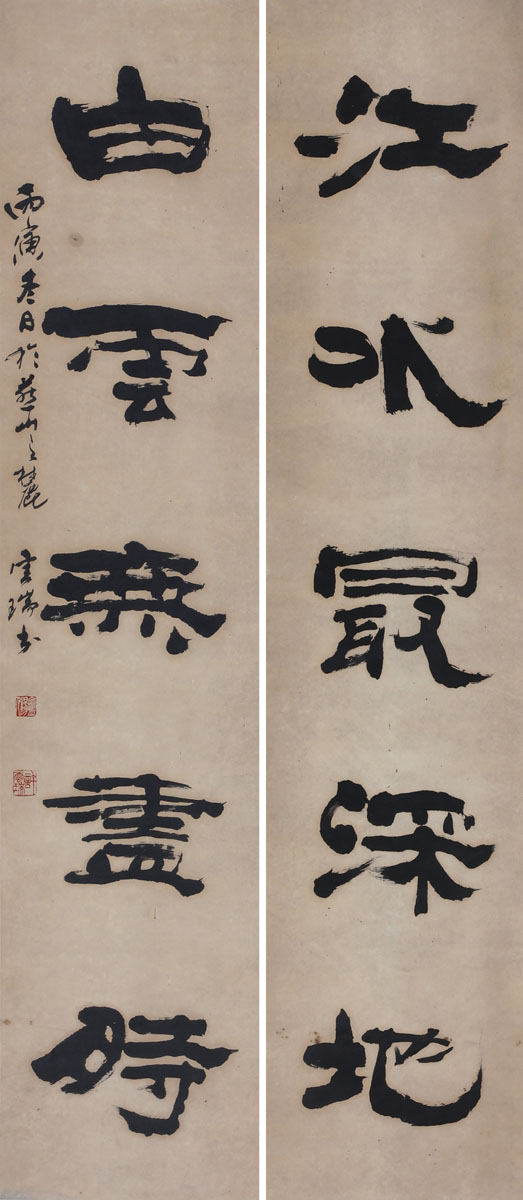 江水最深地
白雲無盡時
丙寅冬日於蔣山之麓 雲瑞書